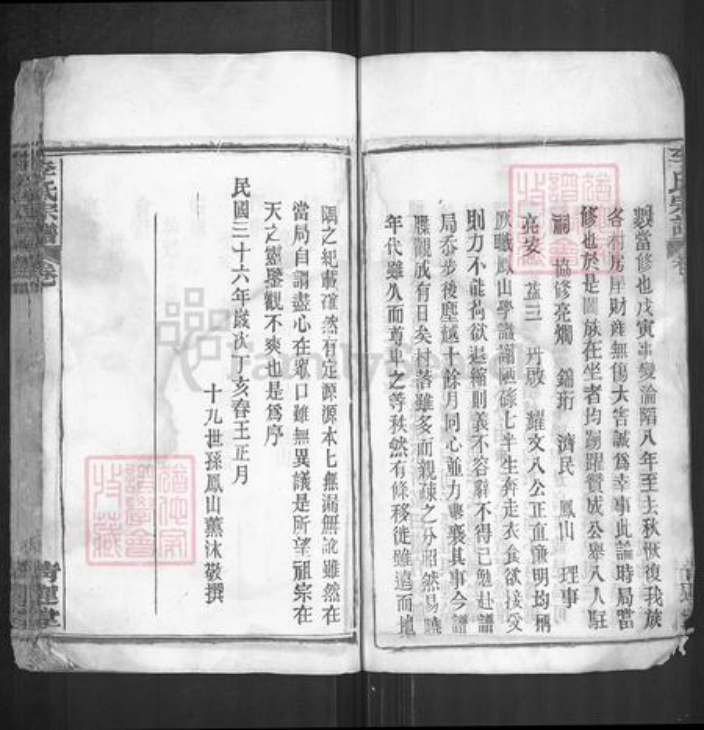 李氏宗譜
數當修也戊寅事變淪陷八年至去秋恢復我族
各村房屋財產無傷大害誠為幸事此論時局當
修也於是闔族在坐者均踴躍贊成公舉八人駐
嗣 協修亮燭 錦珩 濟民 鳳山 理事
亮安 益三 丹啟 耀文八公正直廉明均稱
厥職鳳山學識譾陋碌七半生奔走衣食欲接
則力不能荷欲退縮則義不容辭不得已勉赴譜
局忝步後塵越十餘月同心並力襄其事今譜
牒觀成有日矣村落雖多而親疎之分昭然易曉
年代雖久而尊卑之等秩然有條移徙雖遠而地
隅之紀載確然有定源源本七無漏無訛雖然在
當局自謂盡心在眾口雖無異議是所望祖宗在
天之靈鑒觀不爽也是為序
民國三十六年歲次丁亥春王正月
十九世孫鳳山薰沐敬撰
李氏宗譜 卷
青蓮堂